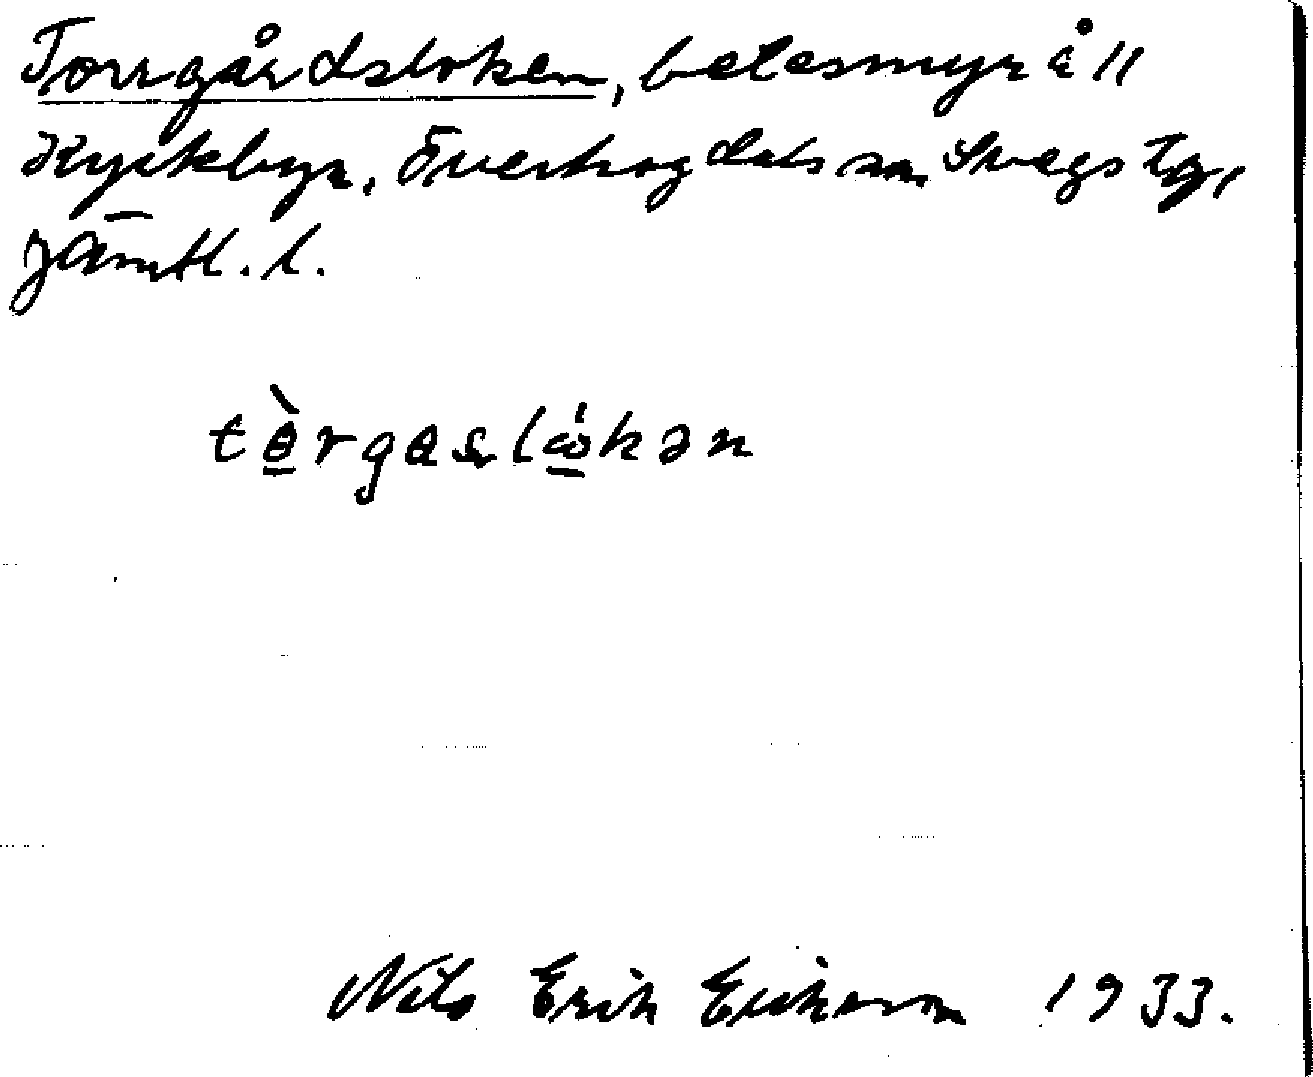 Torrgårdsloken, betesmyr å 11
Kyrkbyn, Överhogdals sn. Svegs tg,
Jämtl. l.
tɵ̱̀rgasʟώ̱kən
Nils Erik Erikson 1933.